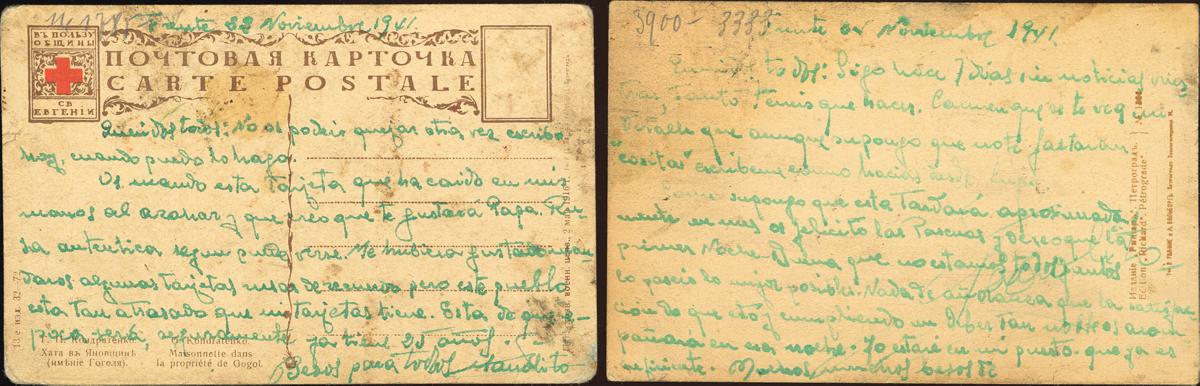 Frente 22 Noviembre 1941.
ВЪ ПОЛЬЗУ
ОБЩИНЫ
СВ.
ЕВГЕНІИ
ПОЧТОВАЯ КАРТОЧКА
CARTE POSTALE
Queridos todos: No os podeis quejar otra vez escribo
hoy, cuando puedo lo hago.
Os mando esta tarjeta que ha caido en mis
manos al azahar y que creo que te gustará Papa. Ru-
sa autentica segun puede verse. Me hubiera gustado man-
daros algunas tarjetas rusas de recuerdo pero este pueblo
esta tan atrasado que ni tarjetas tiene. Esta de que e-
poca será, seguramente ya tiene 25 años.
Besos para todos Manolito
Н. Кондратенко.
Хата въ Яновщинѣ
(имѣніе Гоголя).
G. Kondratenko.
Maisonnette dans
la propriété de Gogol.
3900- 3383
Frente Noviembre 1941.
Sigo hace 7 días sin noticias
Tanto teneis que hacer. Carmen que es to veo
detalle que aunque supongo que no te faltarian
"cositas" escribeme como hacias desde
supongo que esta tardará aproximada-
mente un mes os felicito las Pascuas y deseo que la
primer Noche Buena que no estamos todos juntos
la paseis lo mejor posible. Nada de añoranza que la satisfac-
ción de que estoy cumpliendo un deber tan nuestro os acom-
pañará en esa noche. Yo estaré en mi puesto que ya es
suficiente. Muchos besos de
Изданіе "Ришаръ", Петроградъ.
Edition "Richard", Pétrograde